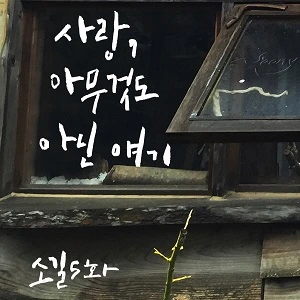 사랑,
아무것도
아닌 얘기
소길5화